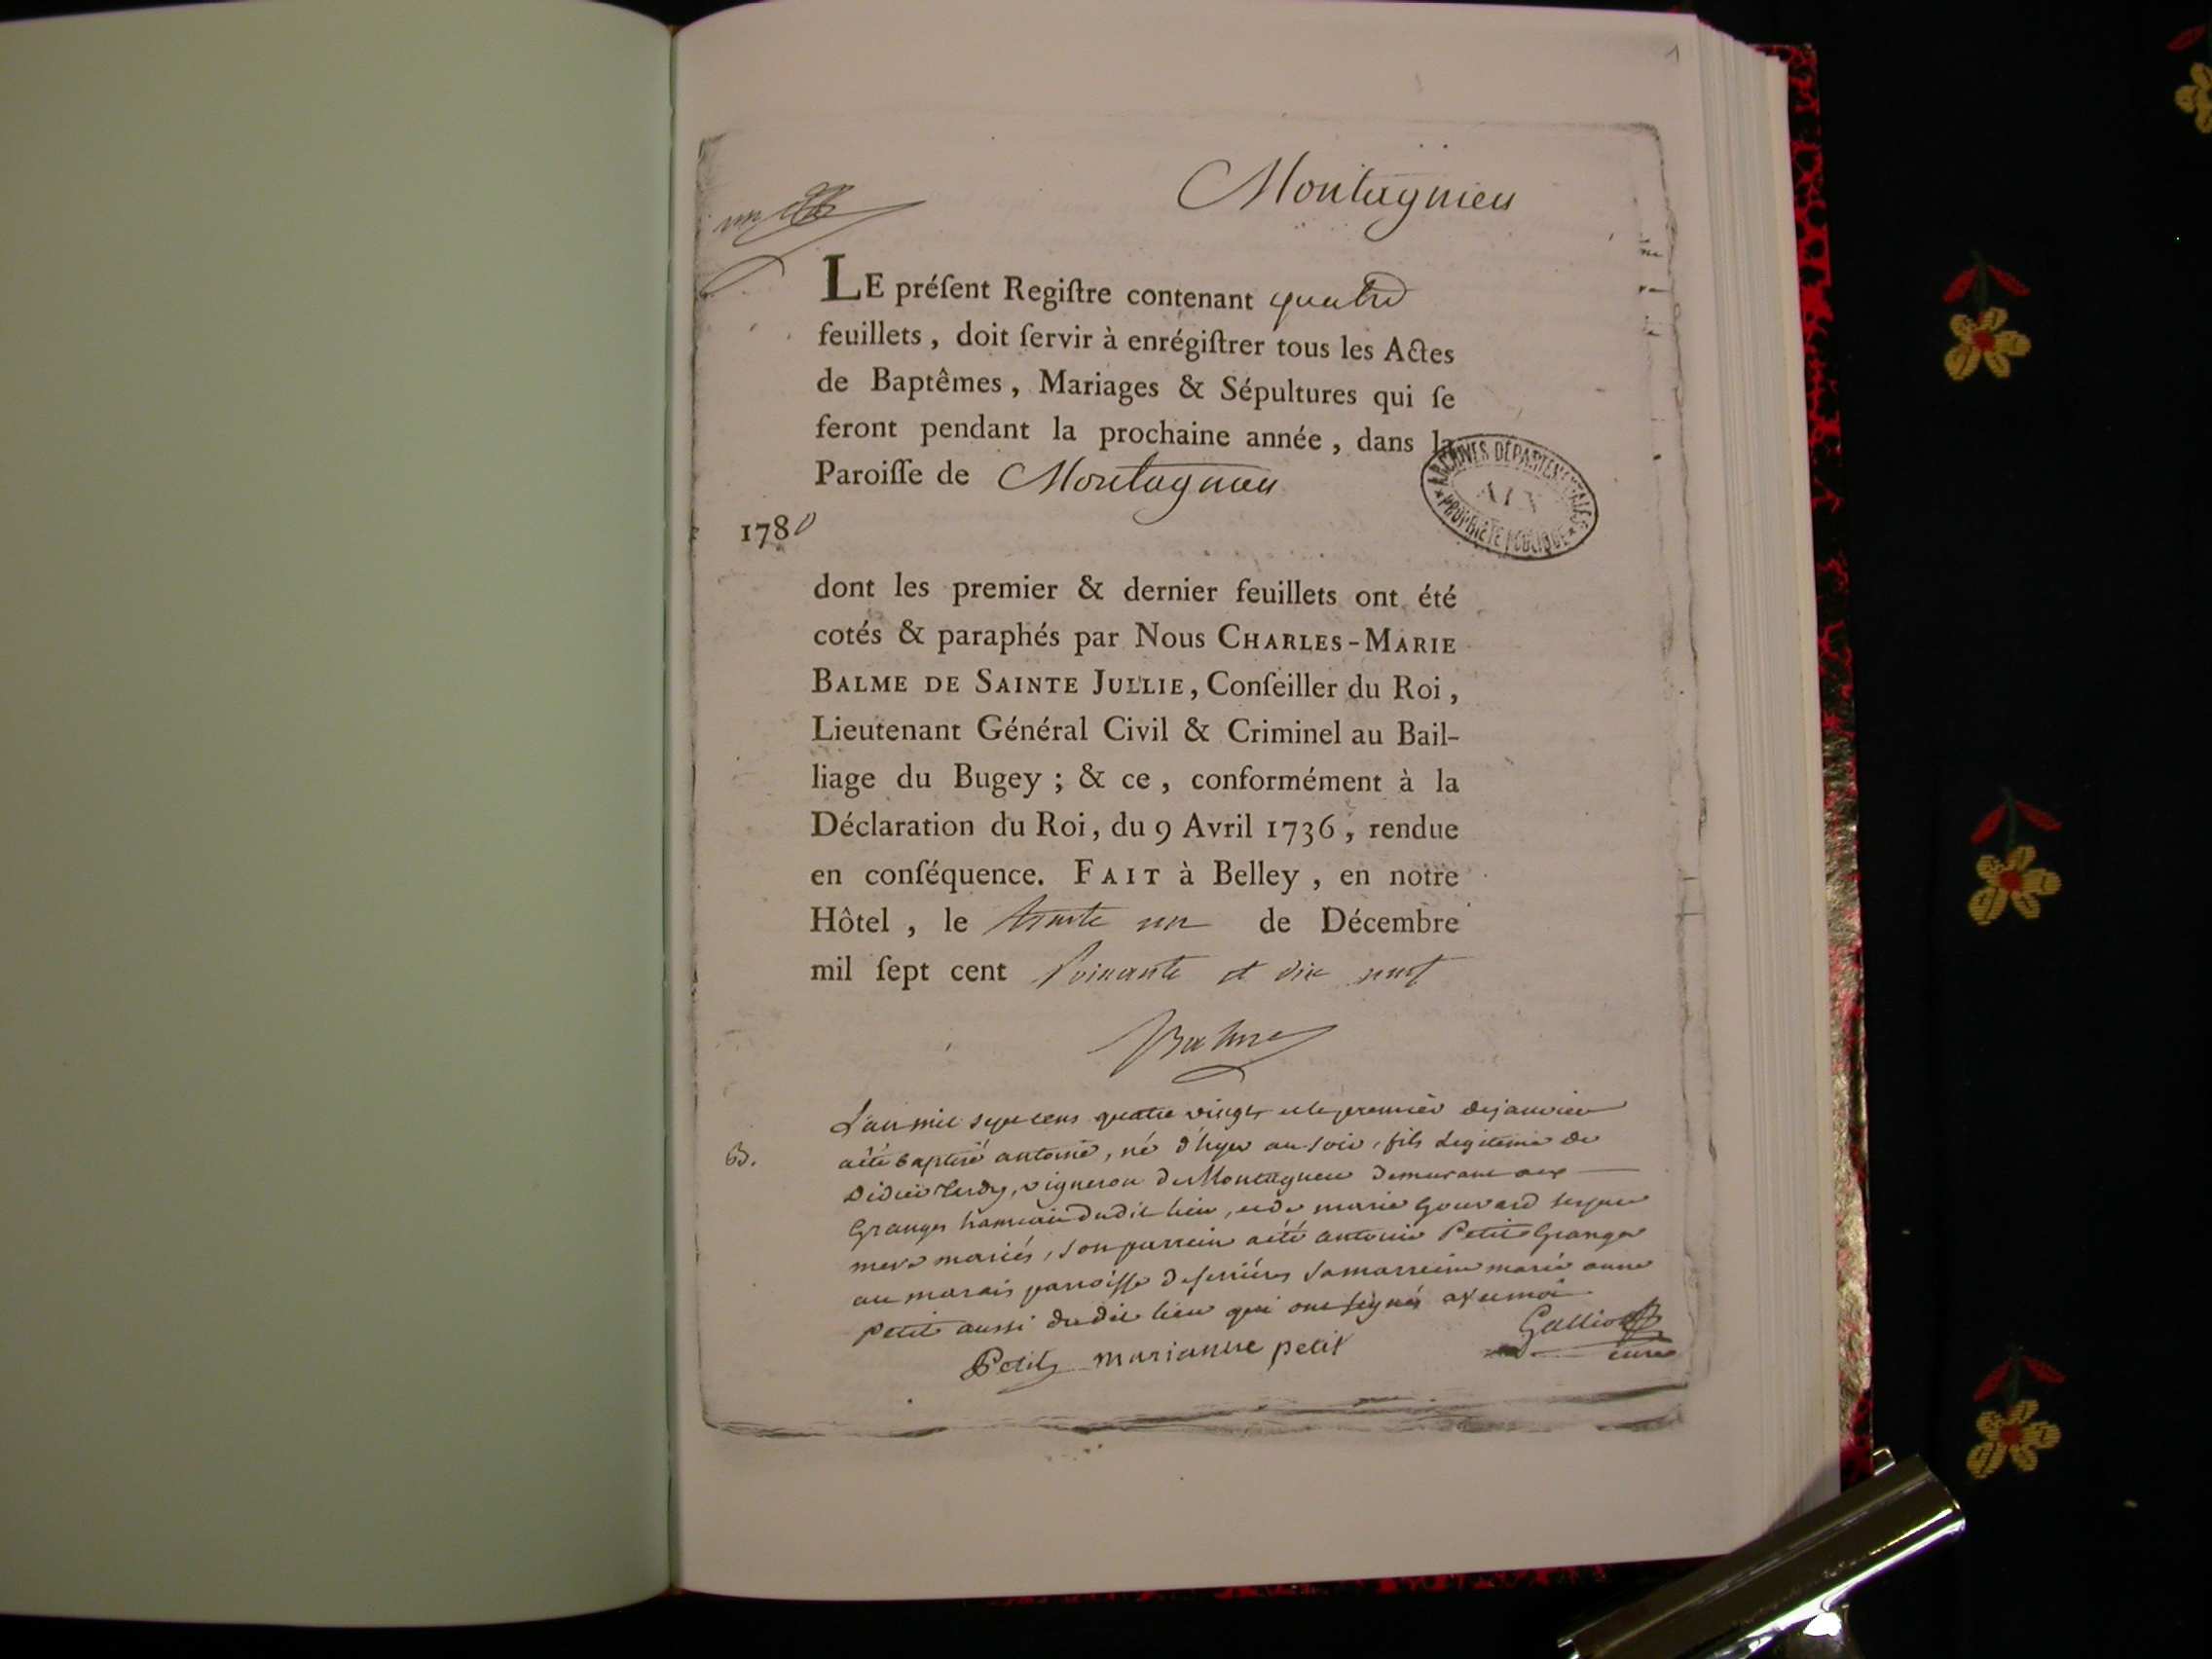 1
Montagnieu
un
LE préſent Regiſtre contenant quatre
feuillets, doit ſervir à enrégiſtrer tous les Actes
de Baptêmes, Mariages & Sépultures qui ſe
feront pendant la prochaine année, dans la
Paroiſſe de Montagnieu
ARCHIVES DÉPARTEMENTALES
AIN
PROPRIÉTÉ PUBLIQUE
1780
dont les premier & dernier feuillets ont été
cotés & paraphés par Nous CHARLES-MARIE
BALME DE SAINTE JULLIE, Conſeiller du Roi,
Lieutenant Général Civil & Criminel au Bail-
liage du Bugey ; & ce, conformément à la
Déclaration du Roi, du 9 Avril 1736, rendue
en conſéquence. FAIT à Belley, en notre
Hôtel, le trente un de Décembre
mil ſept cent soixante et dix neuf
Balme
L'an mil sept cens quatre vingt et le premier de janvier
B. a été baptisé antoine, né d'hyer au soir, fils legitime de
Didier Tardy, vigneron de Montagnieu demeurant aux
Granges hameau dudit lieu, et de marie Gouvard ses pere
mere mariés, son parrein a été antoine Petit Granger
au marais parroisse de serriéres sa marreine marie anne
petit aussi dudit lieu qui ont signés avec moi
Petit marianne petit Galliot
curé